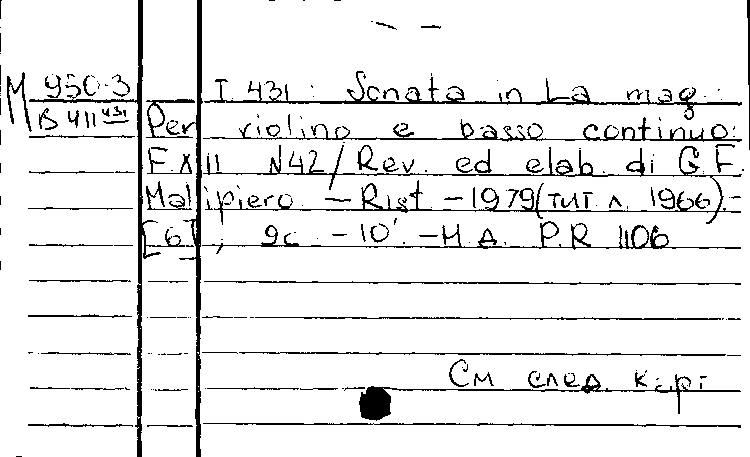 М 950-3 Т. 431: Sonata in La mag.:
В 411 431 Per violino e basso continuo:
F. XIII N42 / Rev. ed elab. di G. F.
Malipiero. — Rist. — 1979 (тит. л. 1966). —
[6], 9 с. — 10'. — Н. Д. P. R. 1106
См. след. карт.